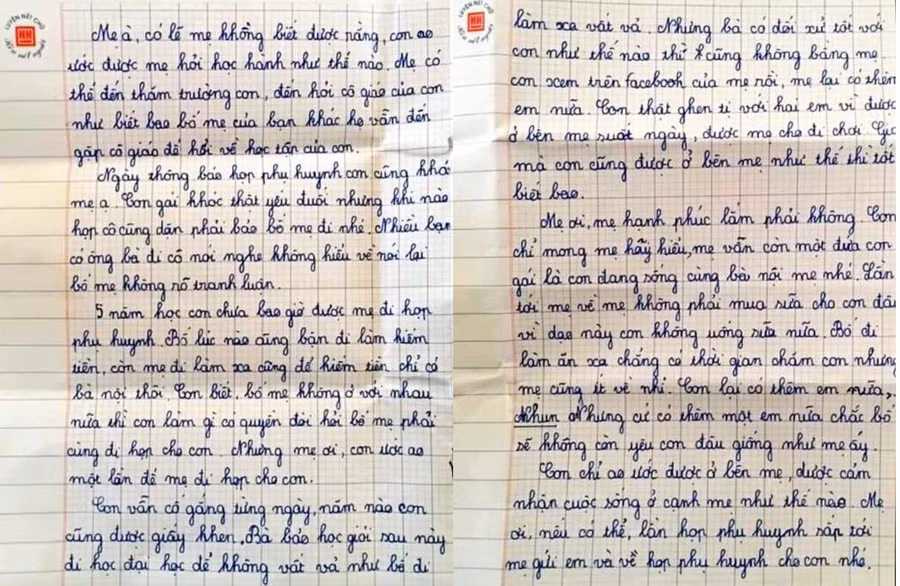 LUYỆN NÉT CHỮ
HH
Mẹ à, có lẽ mẹ không biết được rằng, con ao
ước được mẹ hỏi học hành như thế nào. Mẹ có
thể đến thăm trường con, đến hỏi cô giáo của con
như biết bao bố mẹ của bạn khác họ vẫn đến
gặp cô giáo để hỏi về học tấn của con.
Ngày thông báo họp phụ huynh con cũng khóc
mẹ ạ. Con gái khóc thật yếu đuối nhưng khi nào
họp cô cũng dặn phải bảo bố mẹ đi nhé. Nhiều bạn
có ông bà đi cô nói nghe không hiểu về nói lại
bố mẹ không rõ tranh luận.
5 năm học con chưa bao giờ được mẹ đi họp
phụ huynh. Bố lúc nào cũng bận đi làm kiếm
tiền, còn mẹ đi làm xa cũng để kiếm tiền chỉ có
bà nội thôi. Con biết, bố mẹ không ở với nhau
nữa thì con làm gì có quyền đòi hỏi bố mẹ phải
cùng đi họp cho con. Nhưng mẹ ơi, con ước ao
một lần để mẹ đi họp cho con.
Con vẫn cố gắng từng ngày, năm nào con
cũng được giấy khen. Bà bảo học giỏi sau này
đi học đại học để không vất vả như bố đi
LUYỆN NÉT CHỮ
HH
làm xa vất vả. Nhưng bà có đối xử tốt với
con như thế nào thì cũng không bằng mẹ.
Con xem trên facebook của mẹ rồi, mẹ lại có thêm
em nữa. Con thật ghen tị với hai em vì được
ở bên mẹ suốt ngày, được mẹ cho đi chơi. Ước
mà con cũng được ở bên mẹ như thế thì tốt
biết bao.
Mẹ ơi, mẹ hạnh phúc lắm phải không. Con
chỉ mong mẹ hãy hiểu, mẹ vẫn còn một đứa con
gái là con đang sống cùng bà nội mẹ nhé. Lần
tới mẹ về mẹ không phải mua sữa cho con đâu
vì dạo này con không uống sữa nữa. Bố đi
làm ăn xa chẳng có thời gian chăm con nhưng
mẹ cũng ít về nhỉ. Con lại có thêm em nữa,
Nhưn Nhưng cứ có thêm một em nữa chắc bố
sẽ không còn yêu con đâu giống như mẹ ấy.
Con chỉ ao ước được ở bên mẹ, được cảm
nhận cuộc sống ở cạnh mẹ như thế nào. Mẹ
ơi, nếu có thể, lần họp phụ huynh sắp tới
mẹ gửi em và về họp phụ huynh cho con nhé.